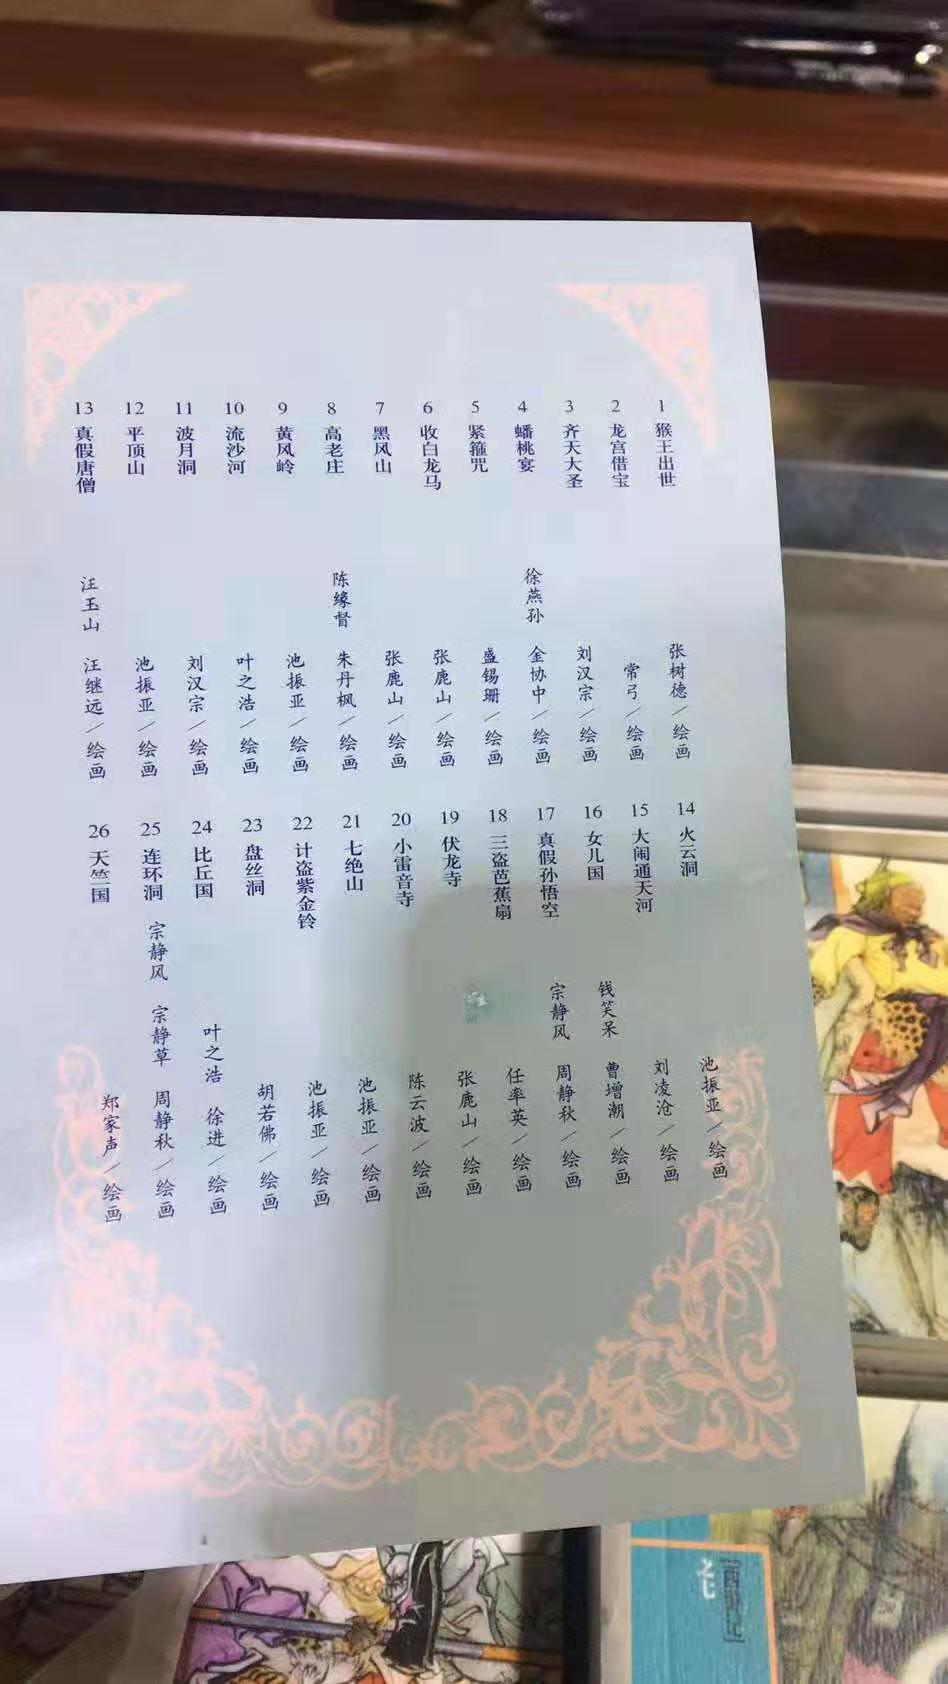 1 猴王出世 张树德/绘画
2 龙宫借宝 常弓/绘画
3 齐天大圣 刘汉宗/绘画
4 蟠桃宴 徐燕孙 金协中/绘画
5 紧箍咒 盛锡珊/绘画
6 收白龙马 张鹿山/绘画
7 黑风山 张鹿山/绘画
8 高老庄 陈缘督 朱丹枫/绘画
9 黄风岭 池振亚/绘画
10 流沙河 叶之浩/绘画
11 波月洞 刘汉宗/绘画
12 平顶山 池振亚/绘画
13 真假唐僧 汪玉山 汪继远/绘画
14 火云洞 池振亚/绘画
15 大闹通天河 刘凌沧/绘画
16 女儿国 钱笑呆 曹增潮/绘画
17 真假孙悟空 宗静风 周静秋/绘画
18 三盗芭蕉扇 任率英/绘画
19 伏龙寺 张鹿山/绘画
20 小雷音寺 陈云波/绘画
21 七绝山 池振亚/绘画
22 计盗紫金铃 池振亚/绘画
23 盘丝洞 胡若佛/绘画
24 比丘国 叶之浩 徐进/绘画
25 连环洞 宗静风 宗静草 周静秋/绘画
26 天竺国 郑家声/绘画
[西游记]
之七